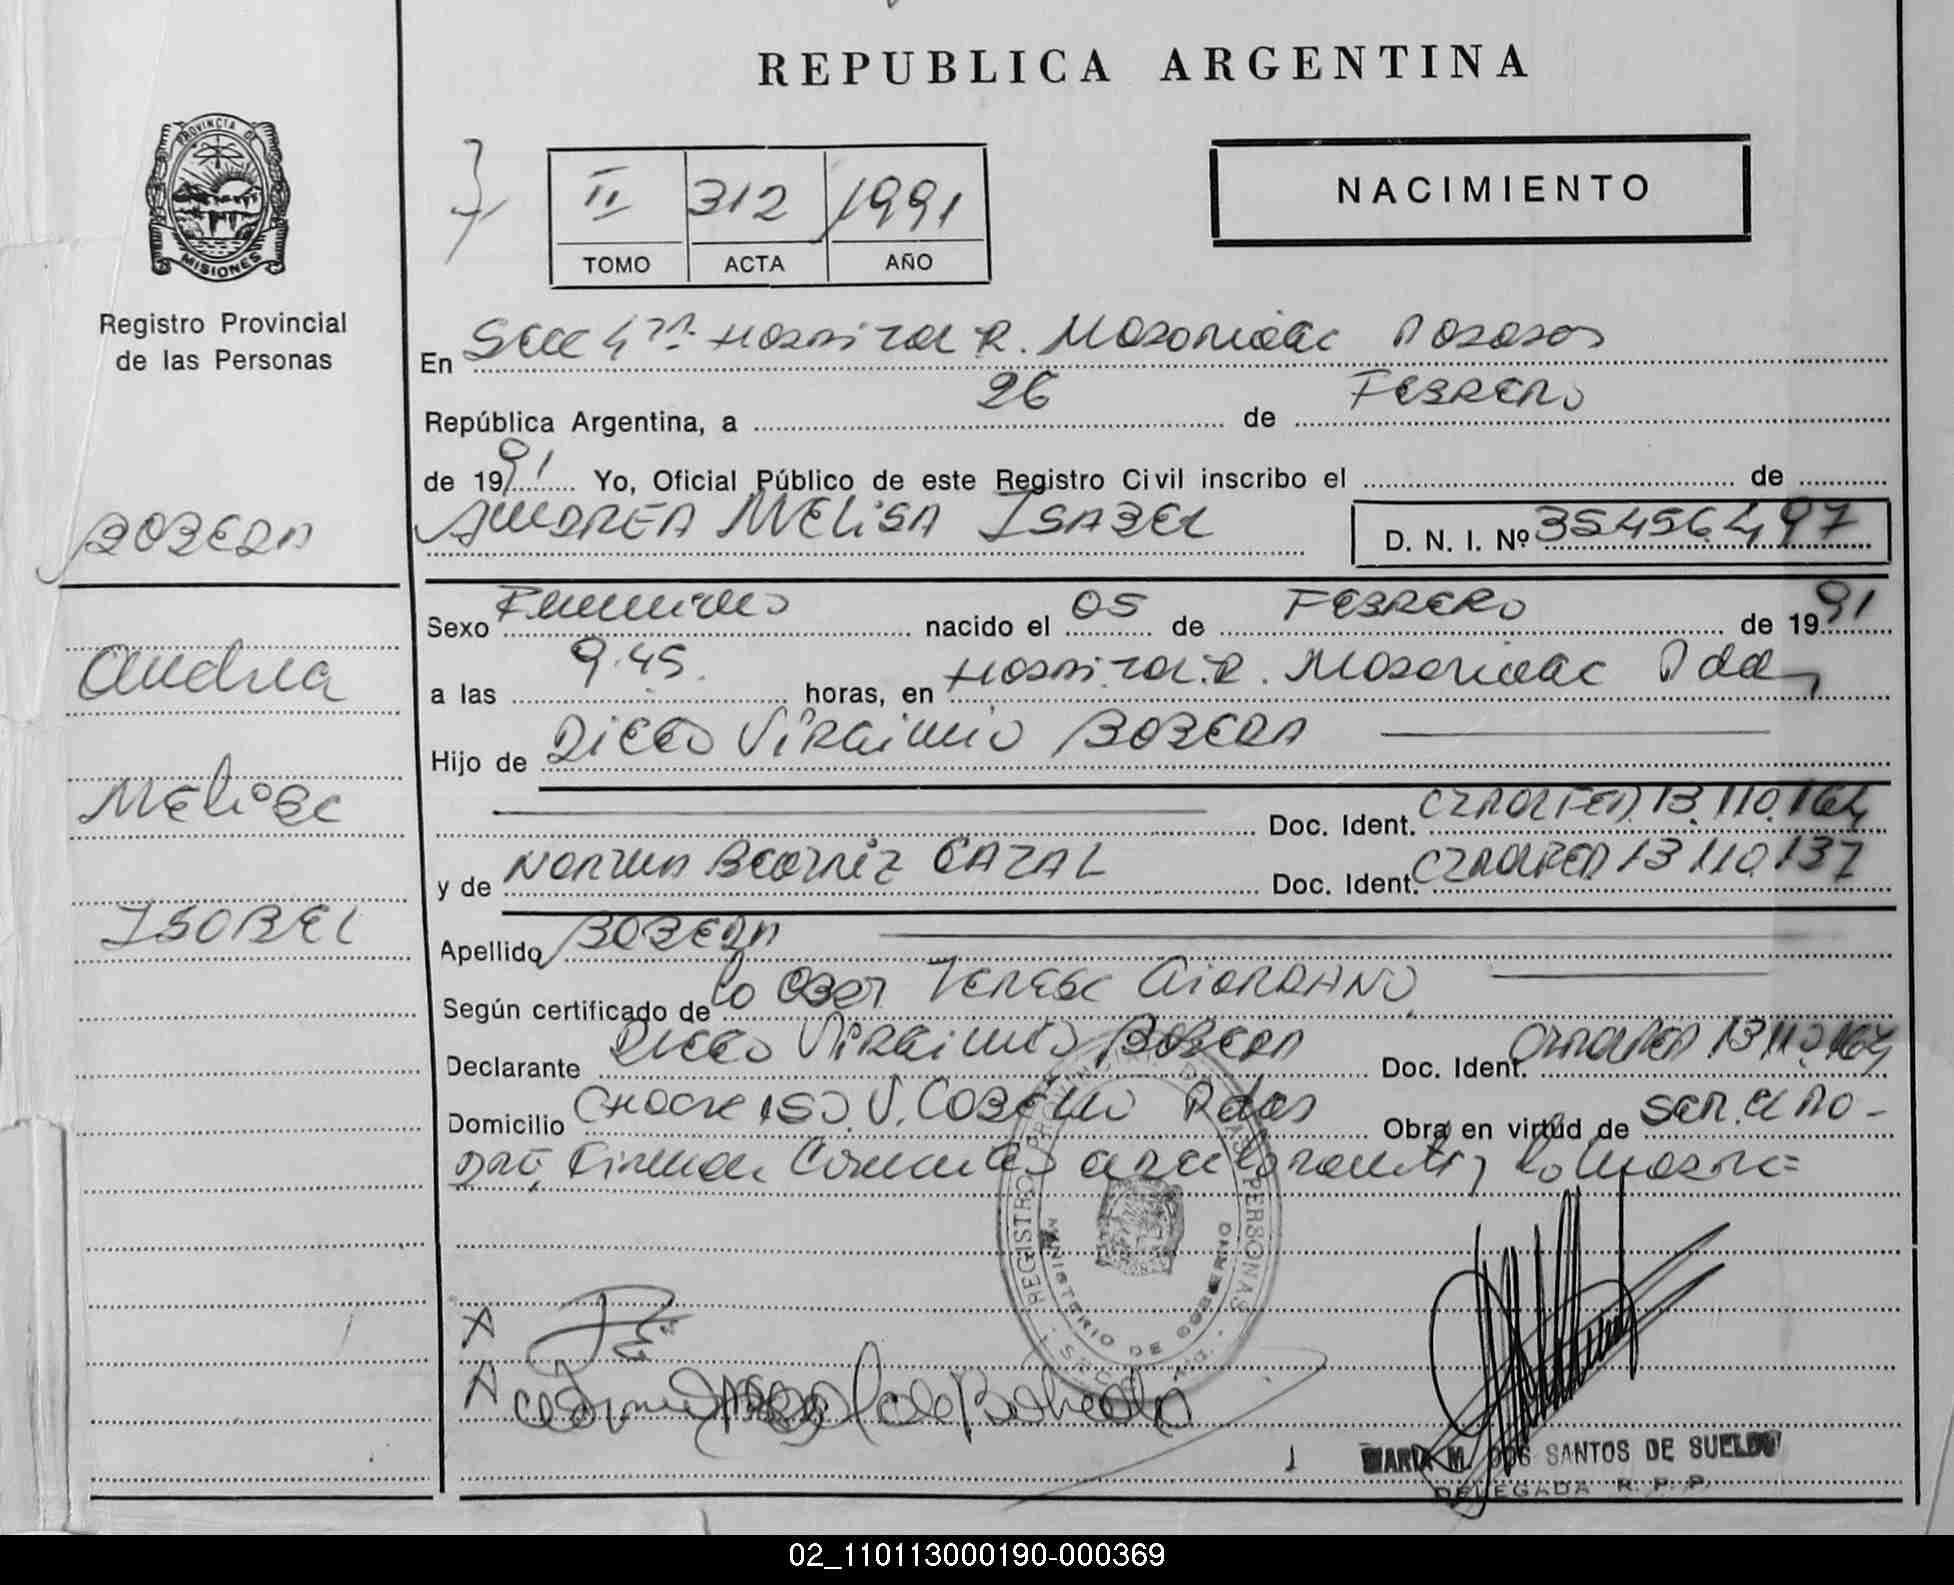 REPUBLICA ARGENTINA
PROVINCIA DE
MISIONES
Registro Provincial
de las Personas
II 312 1991
TOMO ACTA AÑO
NACIMIENTO
En Hospital R. Posadas
República Argentina, a 26 de FEBRERO
de 1991 Yo, Oficial Público de este Registro Civil inscribo el de
BOBEDA
ANDREA MELISA ISABEL D. N. I. Nº 35456497
Sexo Femenino nacido el 05 de FEBRERO de 1991
Andrea
a las 9.45. horas, en Hospital R. Pdas
Hijo de DIEGO VIRGINIO BOBEDA
Melisa
Doc. Ident. 13.110.164
y de NORMA BEATRIZ Doc. Ident. 13110.137
ISABEL
Apellido BOBEDA
Según certificado de la Obst TERESA GIORDANO
Declarante DIEGO VIRGINIO BOBEDA Doc. Ident. 13110164
Domicilio 150 V. CABELLO Pdas Obra en virtud de SER. EL PRO-
Firman la madre=
REGISTRO PROVINCIAL DE LAS PERSONAS
MINISTERIO DE GOBIERNO
MARIA M. DOS SANTOS DE SUELDO
DELEGADA R. P. P.
02_110113000190-000369